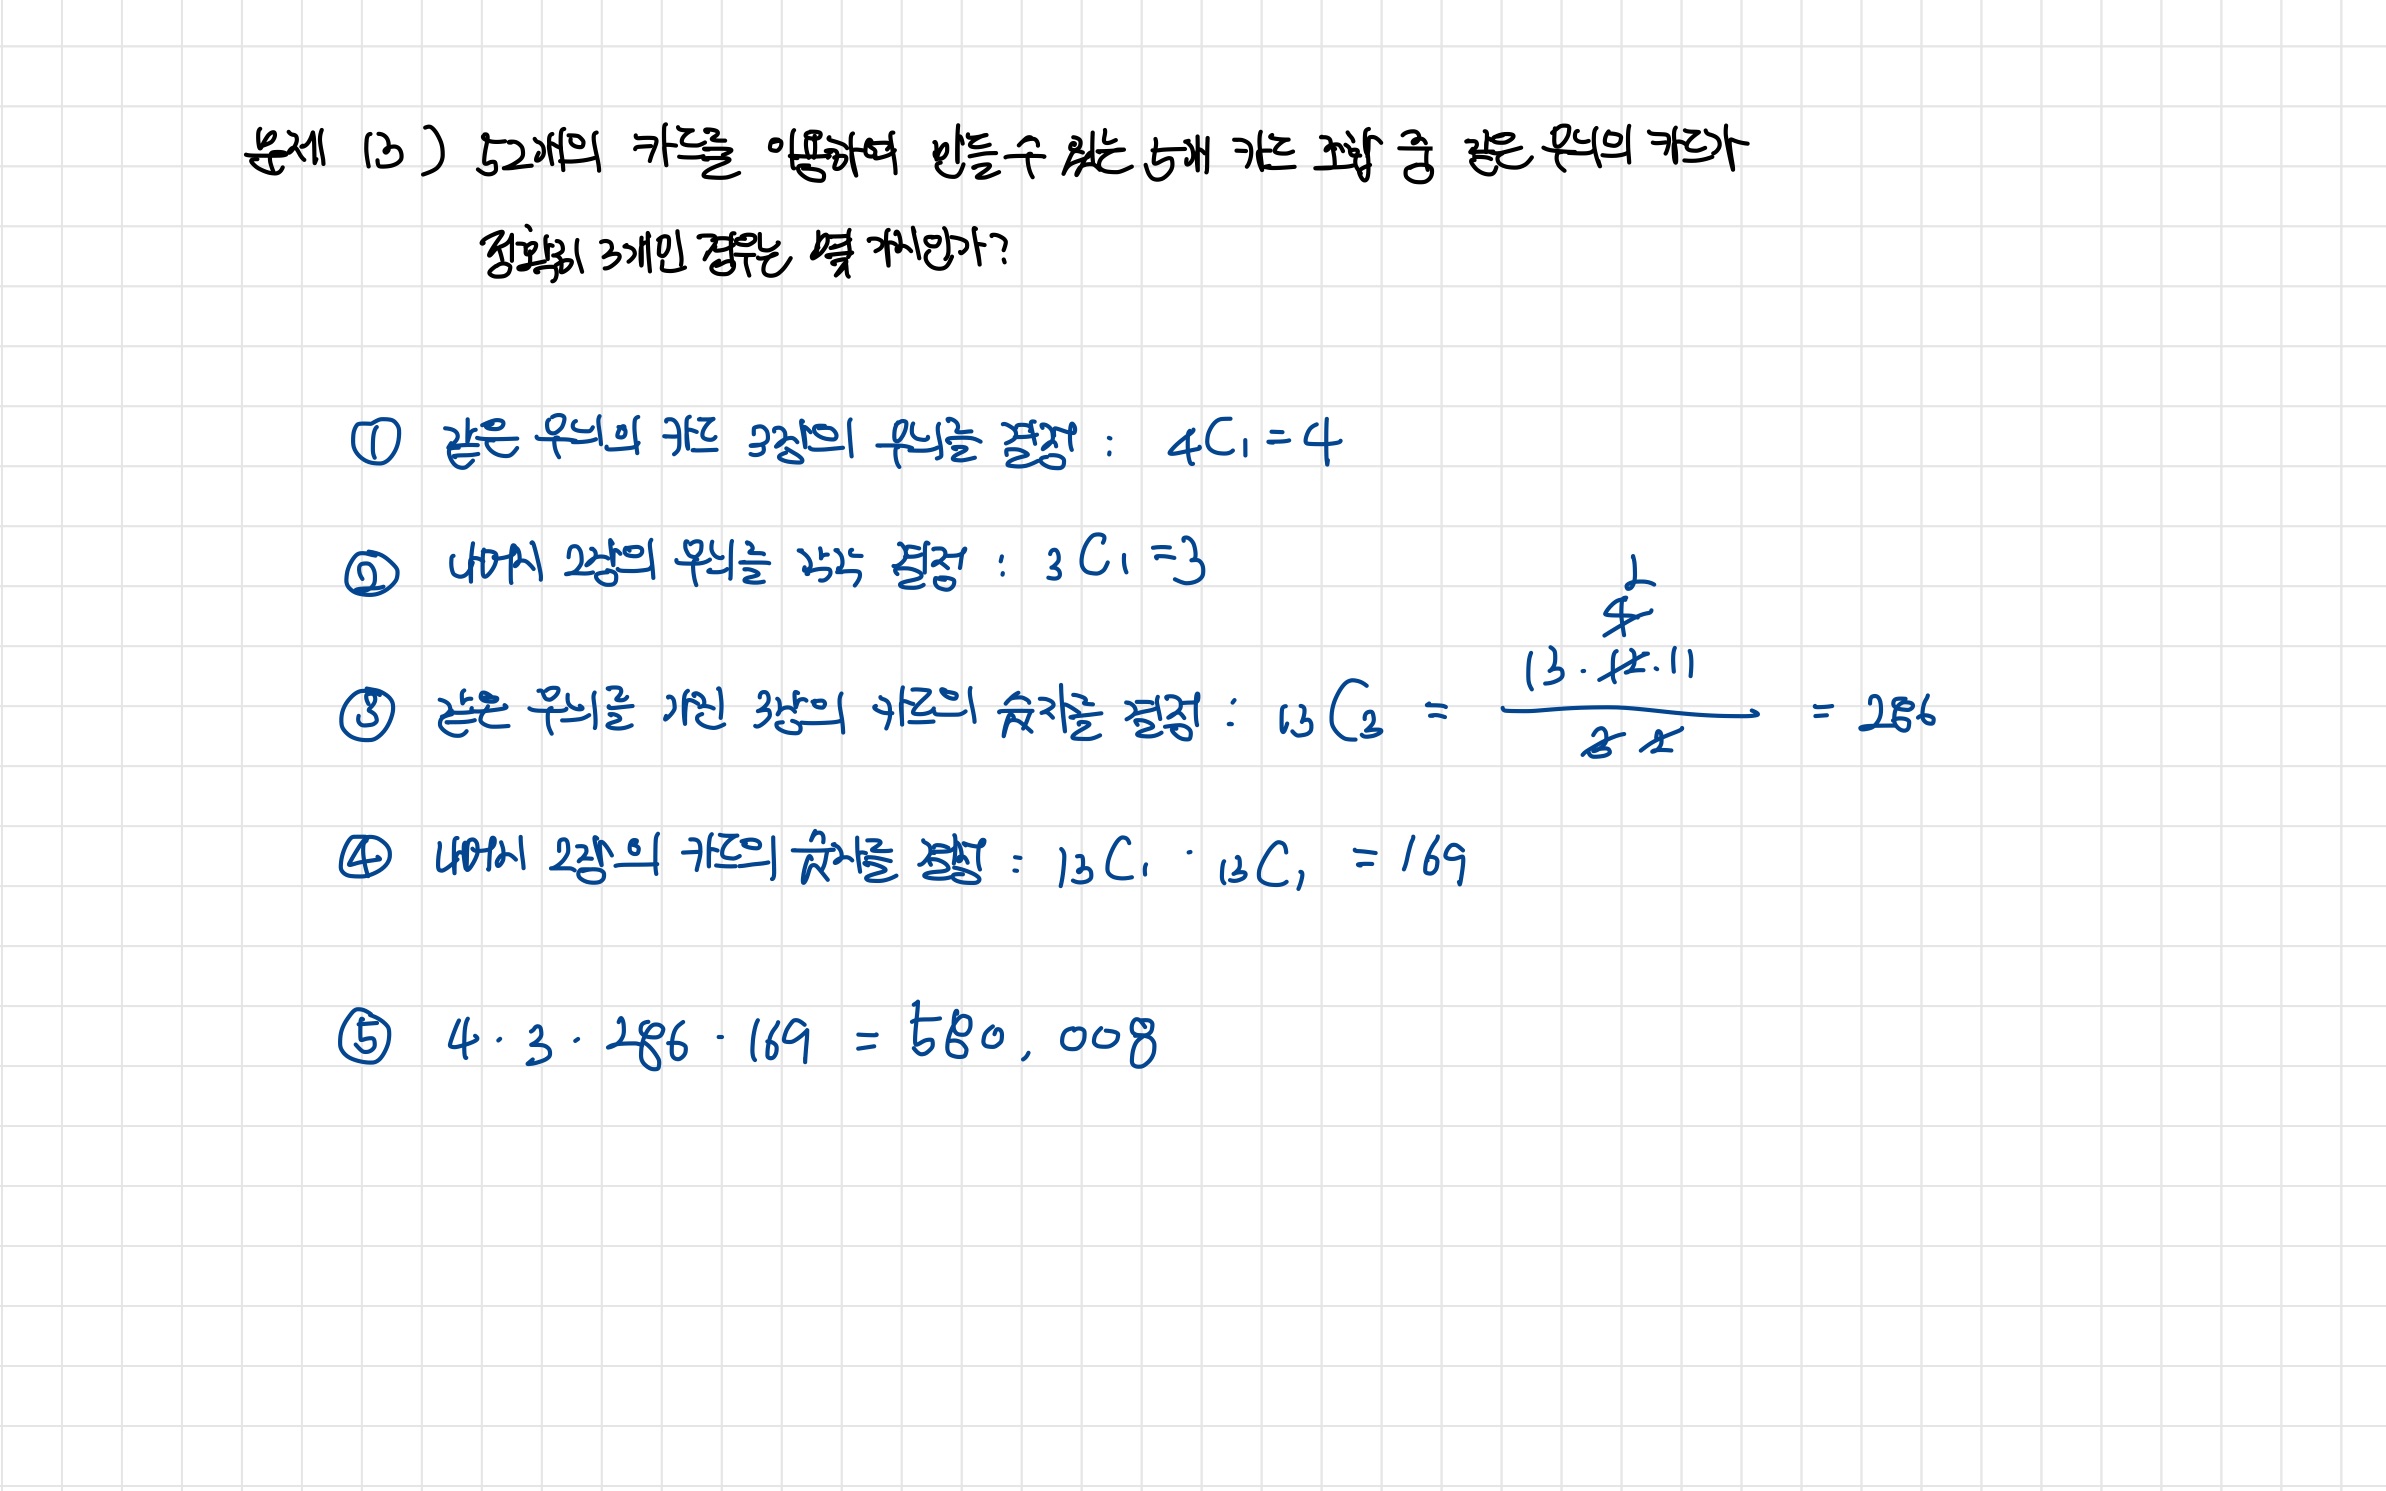 문제 13) 52개의 카드를 이용하여 만들 수 있는 5개 카드 조합 중 같은 무늬의 카드가
정확히 3개인 경우는 몇 가지인가?
① 같은 무늬의 카드 3장의 무늬를 결정 : 4C1 = 4
② 나머지 2장의 무늬를 각각 결정 : 3C1 = 3
③ 같은 무늬를 가진 3장의 카드의 숫자를 결정 : 13C3 = 13·12·11 / 3·2 = 286
④ 나머지 2장의 카드의 숫자를 결정 : 13C1 · 13C1 = 169
⑤ 4 · 3 · 286 · 169 = 580,008